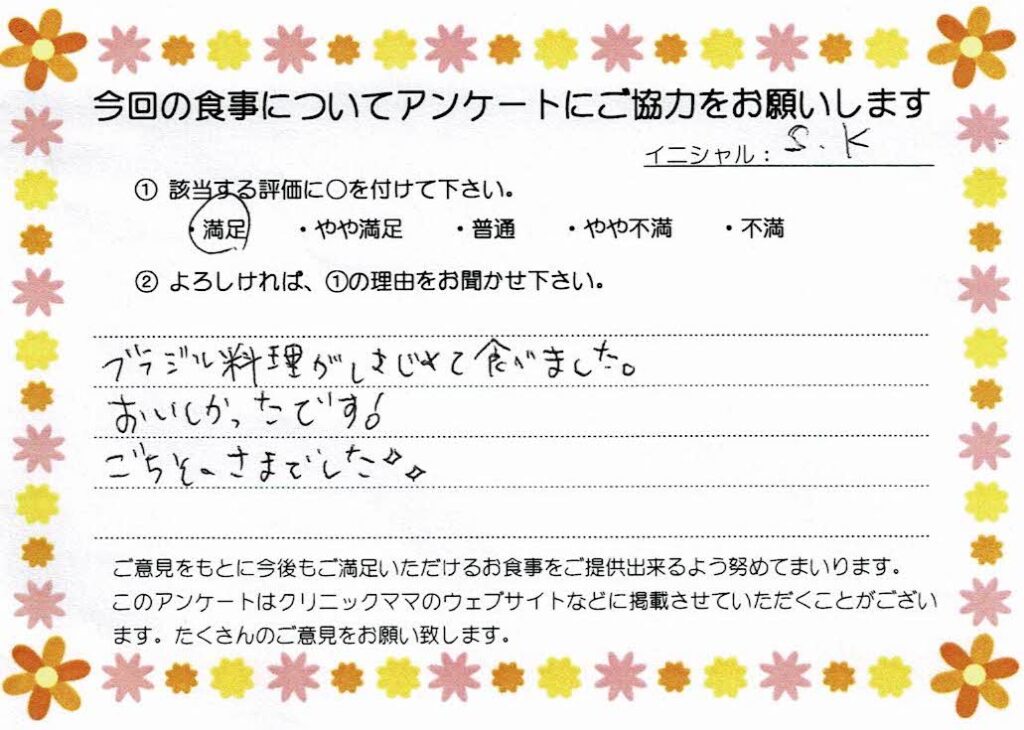 今回の食事についてアンケートにご協力をお願いします
イニシャル: S.K
① 該当する評価に○を付けて下さい。
・満足 ・やや満足 ・普通 ・やや不満 ・不満
② よろしければ、①の理由をお聞かせ下さい。
ブラジル料理がはじめて食べました。
おいしかったです!
ごちそーさまでした✧✧
ご意見をもとに今後もご満足いただけるお食事をご提供出来るよう努めてまいります。
このアンケートはクリニックママのウェブサイトなどに掲載させていただくことがござい
ます。たくさんのご意見をお願い致します。